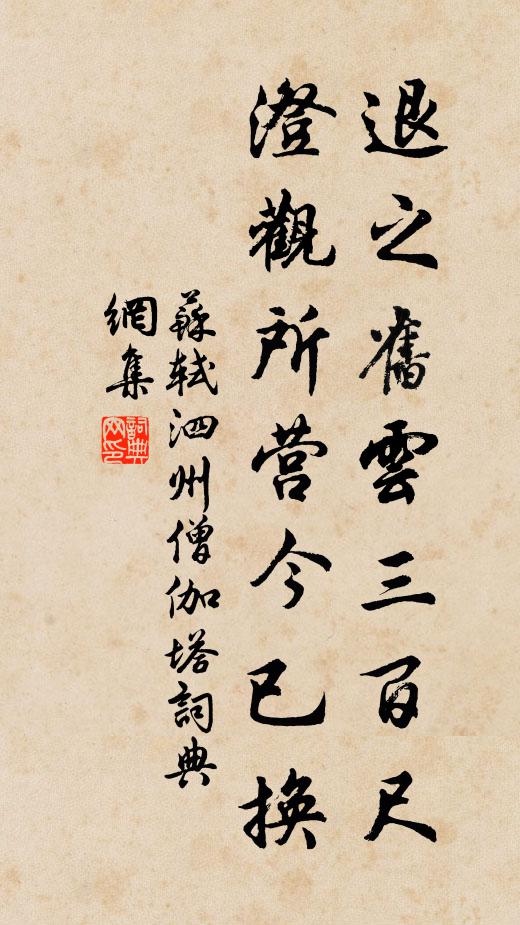 退之舊雲三百尺
澄觀所營今已換
蘇軾泗州僧伽塔詞典
網集
詞典
网印